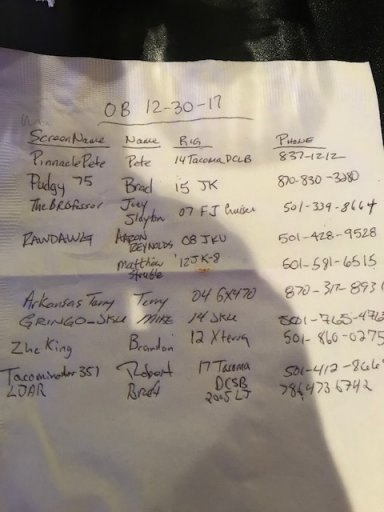 OB 12-30-17
Screen Name Name Rig Phone
PinnaclePete Pete 14 Tacoma DCLB 837-1212
Pudgy 75 Brad 15 JK 870-830-3280
The BROfessor Joey Slayton 07 FJ Cruiser 501-339-8664
RAWDAWG AARON REYNOLDS 08 JKU 501-428-9528
Matthew Struble '12 JK-8 501-581-6515
Arkansas Terry Terry 04 GX470 870-317-8931
GRINGO_JKU MIKE 14 JKU 501-765-4762
Zhe King Brandon 12 Xterra 501-860-0275
Tacominator351 Robert 17 Tacoma DCSB 501-412-866
LJAR Brett 2005 LJ 7864736742